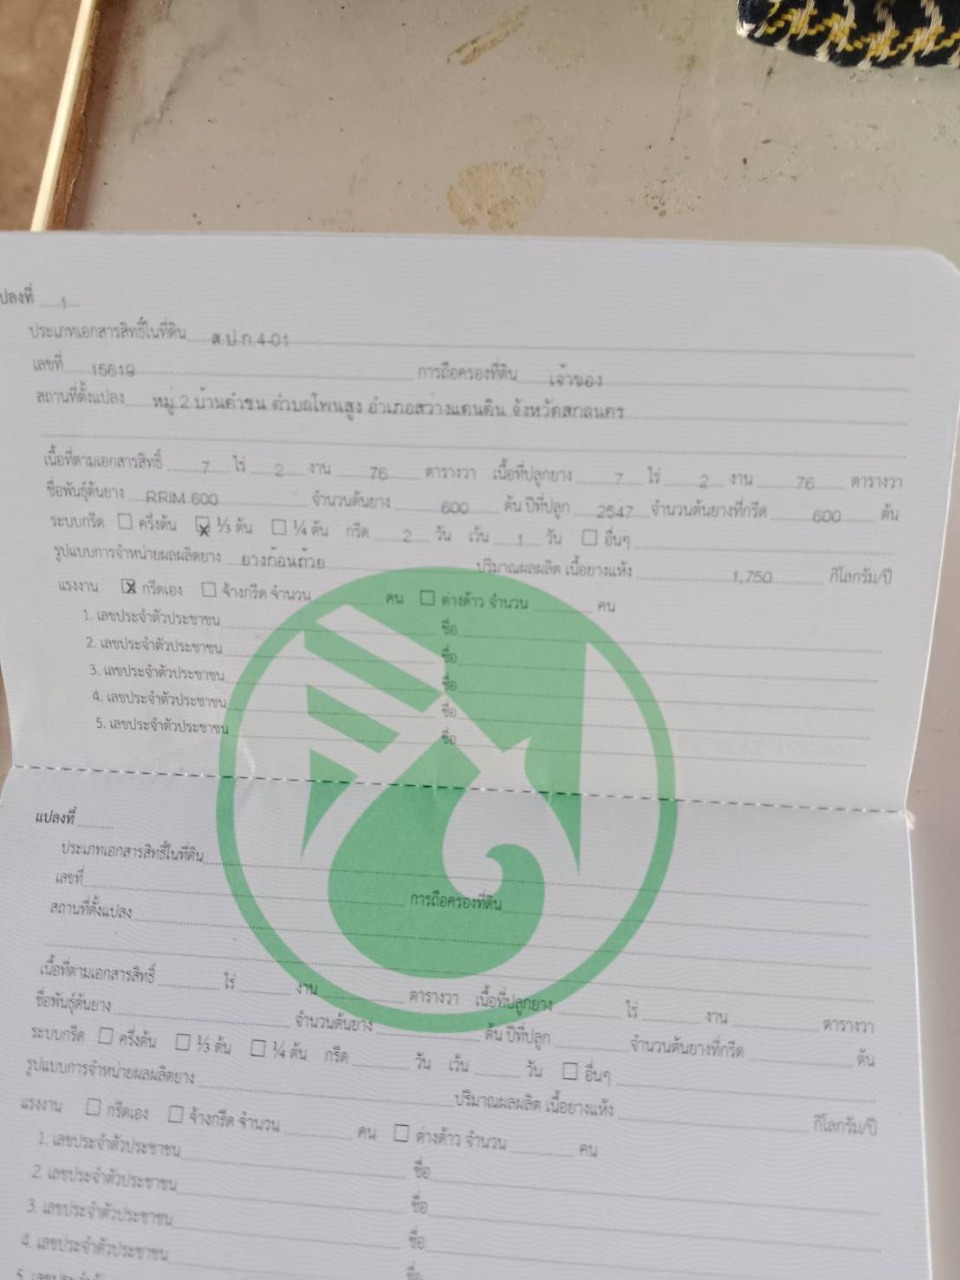 ปลงที่ 1
ประเภทเอกสารสิทธิ์ในที่ดิน ส.ป.ก.4-01
เลขที่ 15619 การถือครองที่ดิน เจ้าของ
สถานที่ตั้งแปลง หมู่ 2 บ้านคำชน ตำบลโพนสูง อำเภอสว่างแดนดิน จังหวัดสกลนคร
เนื้อที่ตามเอกสารสิทธิ์ 7 ไร่ 2 งาน 76 ตารางวา เนื้อที่ปลูกยาง 7 ไร่ 2 งาน 76 ตารางวา
ชื่อพันธุ์ต้นยาง RRIM 600 จำนวนต้นยาง 600 ต้น ปีที่ปลูก 2547 จำนวนต้นยางที่กรีด 600 ต้น
ระบบกรีด ☐ ครึ่งต้น ☒ ⅓ ต้น ☐ ¼ ต้น กรีด 2 วัน เว้น 1 วัน ☐ อื่นๆ
รูปแบบการจำหน่ายผลผลิตยาง ยางก้อนถ้วย ปริมาณผลผลิต เนื้อยางแห้ง 1,750 กิโลกรัม/ปี
แรงงาน ☒ กรีดเอง ☐ จ้างกรีด จำนวน คน ☐ ต่างด้าว จำนวน คน
1. เลขประจำตัวประชาชน ชื่อ
2. เลขประจำตัวประชาชน ชื่อ
3. เลขประจำตัวประชาชน ชื่อ
4. เลขประจำตัวประชาชน ชื่อ
5. เลขประจำตัวประชาชน ชื่อ
แปลงที่
ประเภทเอกสารสิทธิ์ในที่ดิน
เลขที่ การถือครองที่ดิน
สถานที่ตั้งแปลง
เนื้อที่ตามเอกสารสิทธิ์ ไร่ งาน ตารางวา เนื้อที่ปลูกยาง ไร่ งาน ตารางวา
ชื่อพันธุ์ต้นยาง จำนวนต้นยาง ต้น ปีที่ปลูก จำนวนต้นยางที่กรีด ต้น
ระบบกรีด ☐ ครึ่งต้น ☐ ⅓ ต้น ☐ ¼ ต้น กรีด วัน เว้น วัน ☐ อื่นๆ
รูปแบบการจำหน่ายผลผลิตยาง ปริมาณผลผลิต เนื้อยางแห้ง กิโลกรัม/ปี
แรงงาน ☐ กรีดเอง ☐ จ้างกรีด จำนวน คน ☐ ต่างด้าว จำนวน คน
1. เลขประจำตัวประชาชน ชื่อ
2. เลขประจำตัวประชาชน ชื่อ
3. เลขประจำตัวประชาชน ชื่อ
4. เลขประจำตัวประชาชน ชื่อ
5. เลขประจำตัว